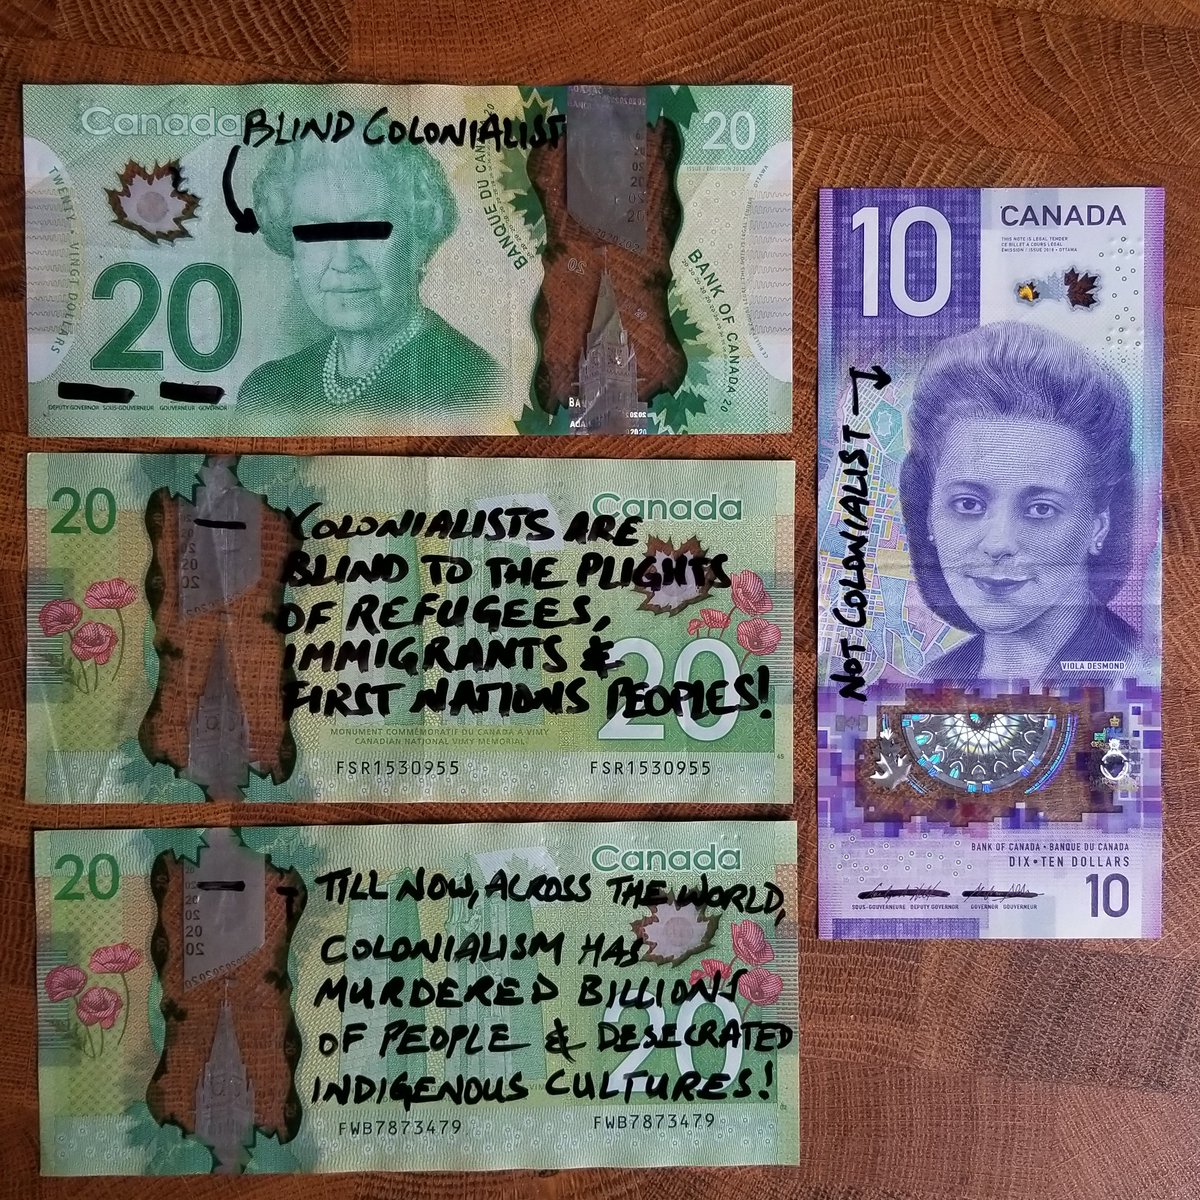 Canada
BLIND COLONIALIST
20
ISSUE / ÉMISSION 2012
OTTAWA
TWENTY • VINGT DOLLARS
BANQUE DU CANADA 20
BANK OF CANADA 20
20
DEPUTY GOVERNOR SOUS-GOUVERNEUR GOUVERNEUR GOVERNOR
20
Canada
COLONIALISTS ARE
BLIND TO THE PLIGHTS
OF REFUGEES,
IMMIGRANTS &
FIRST NATIONS PEOPLES!
20
MONUMENT COMMÉMORATIF DU CANADA À VIMY
CANADIAN NATIONAL VIMY MEMORIAL
FSR1530955
FSR1530955
20
Canada
- TILL NOW, ACROSS THE WORLD,
COLONIALISM HAS
MURDERED BILLIONS
OF PEOPLE & DESECRATED
INDIGENOUS CULTURES!
20
FWB7873479
FWB7873479
10
CANADA
THIS NOTE IS LEGAL TENDER
CE BILLET A COURS LÉGAL
ÉMISSION / ISSUE 2018 • OTTAWA
NOT COLONIALIST →
VIOLA DESMOND
BANK OF CANADA • BANQUE DU CANADA
DIX • TEN DOLLARS
10
SOUS-GOUVERNEURE DEPUTY GOVERNOR
GOVERNOR GOUVERNEUR